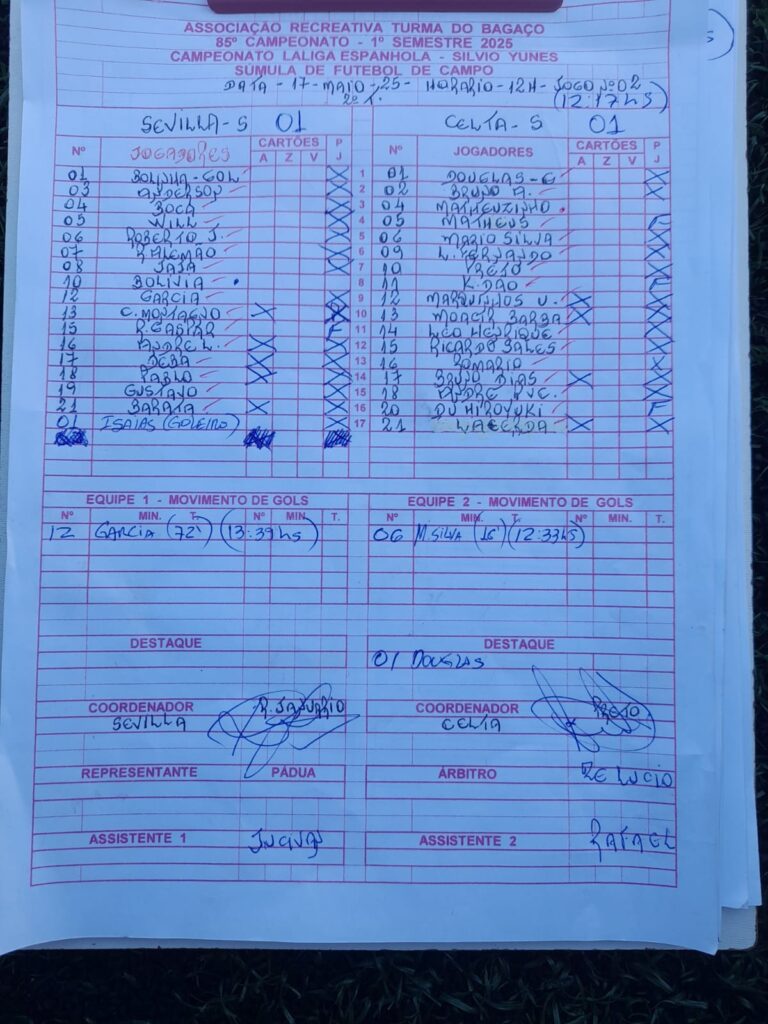 ASSOCIAÇÃO RECREATIVA TURMA DO BAGAÇO
85º CAMPEONATO - 1º SEMESTRE 2025
CAMPEONATO LALIGA ESPANHOLA - SILVIO YUNES
SÚMULA DE FUTEBOL DE CAMPO
DATA - 17 - MAIO - 25 - HORARIO - 12H - JOGO Nº 02
2º T. (12:17HS)
SEVILLA - S 01 CELTA - S 01
Nº JOGADORES CARTÕES P J Nº JOGADORES CARTÕES P J
A Z V A Z V
01 BOLINHA - GOL X 1 01 DOUGLAS - G X
03 ANDERSON X 2 02 BRUNO A. X
04 BOCA X 3 04 MATHEUZINHO.
05 WILL X 4 05 MATHEUS F
06 ROBERTO J. X 5 06 MARIO SILVA X
07 R. ALEMÃO X 6 09 L. FERNANDO X
08 JAJA X 7 10 PRETO X
10 BOLIVIA . 8 11 K. DAO F
12 GARCIA X 9 12 MARQUINHOS V. X X
13 C. MONTAGNO X X 10 13 MOACIR BARBA X X
15 F 11 14 LEO HENRIQUE X
16 ANDRE L. X X 12 15 RICARDO SALES X
17 DEBA X X 13 16 ROMARIO X
18 PABLO X X 14 17 BRUNO DIAS X X
19 GUSTAVO X 15 18 ANDRE X
21 BARATA X X 16 20 DU HIROYUKI F
01 ISAIAS (GOLEIRO) X 17 21 LACERDA X X
EQUIPE 1 - MOVIMENTO DE GOLS EQUIPE 2 - MOVIMENTO DE GOLS
Nº MIN. T. Nº MIN. T. Nº MIN. T. Nº MIN. T.
12 GARCIA (72') (13:39HS) 06 M. SILVA (16') (12:33HS)
DESTAQUE DESTAQUE
01 DOUGLAS
COORDENADOR R. JANUARIO COORDENADOR PRETO
SEVILLA CELTA
REPRESENTANTE PÁDUA ÁRBITRO ZE LUCIO
ASSISTENTE 1 ASSISTENTE 2 RAFAEL